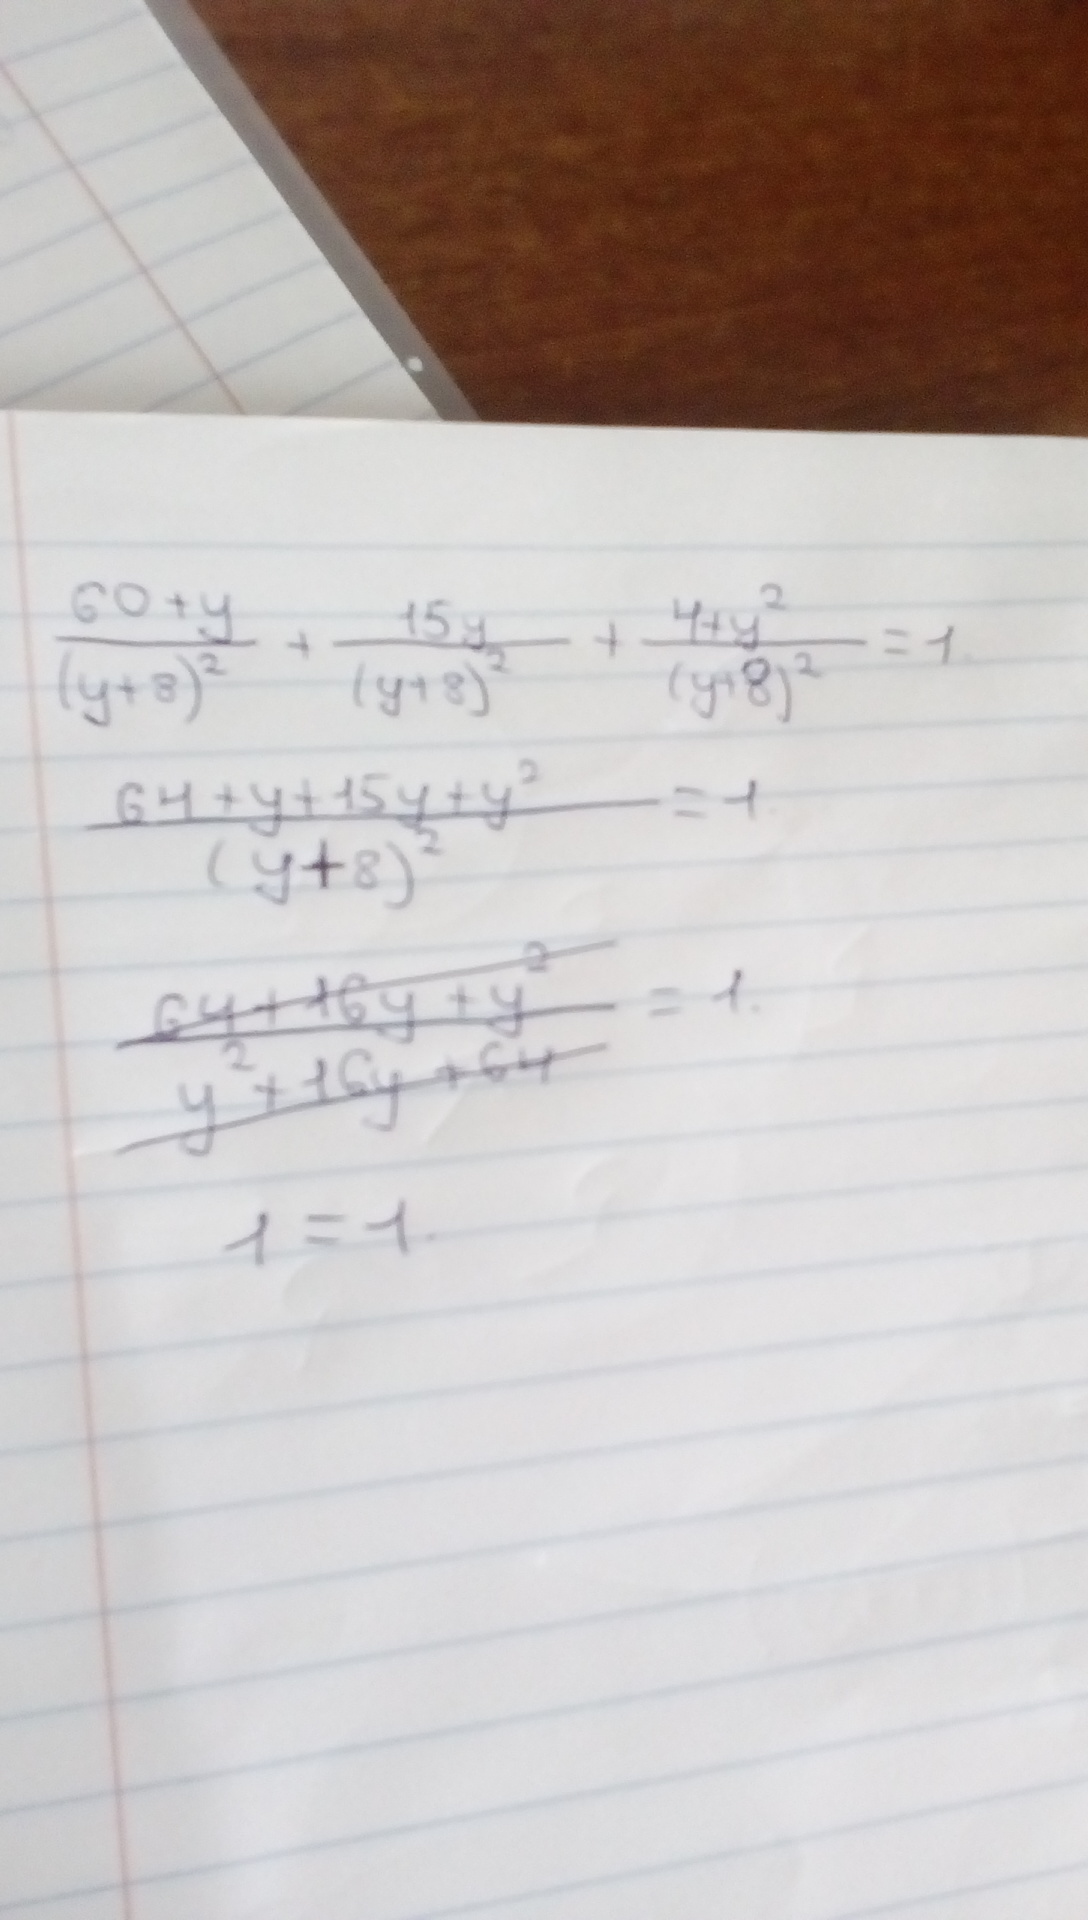 (60+y)/(y+8)² + 15y/(y+8)² + (4+y²)/(y+8)² = 1.
(64+y+15y+y²)/(y+8)² = 1.
(64+16y+y²)/(y²+16y+64) = 1.
1 = 1.